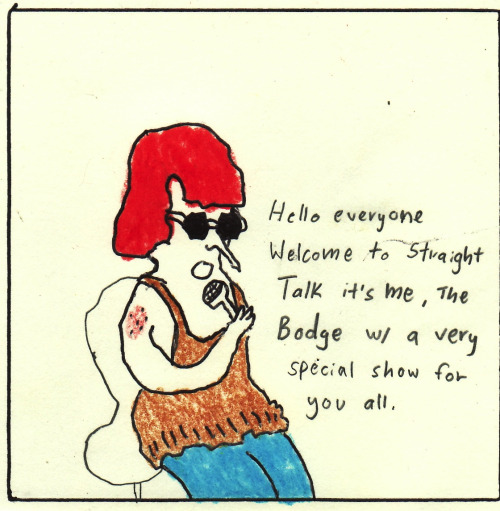 Hello everyone
Welcome to Straight
Talk it's me, The
Bodge w/ a very
special show for
you all.